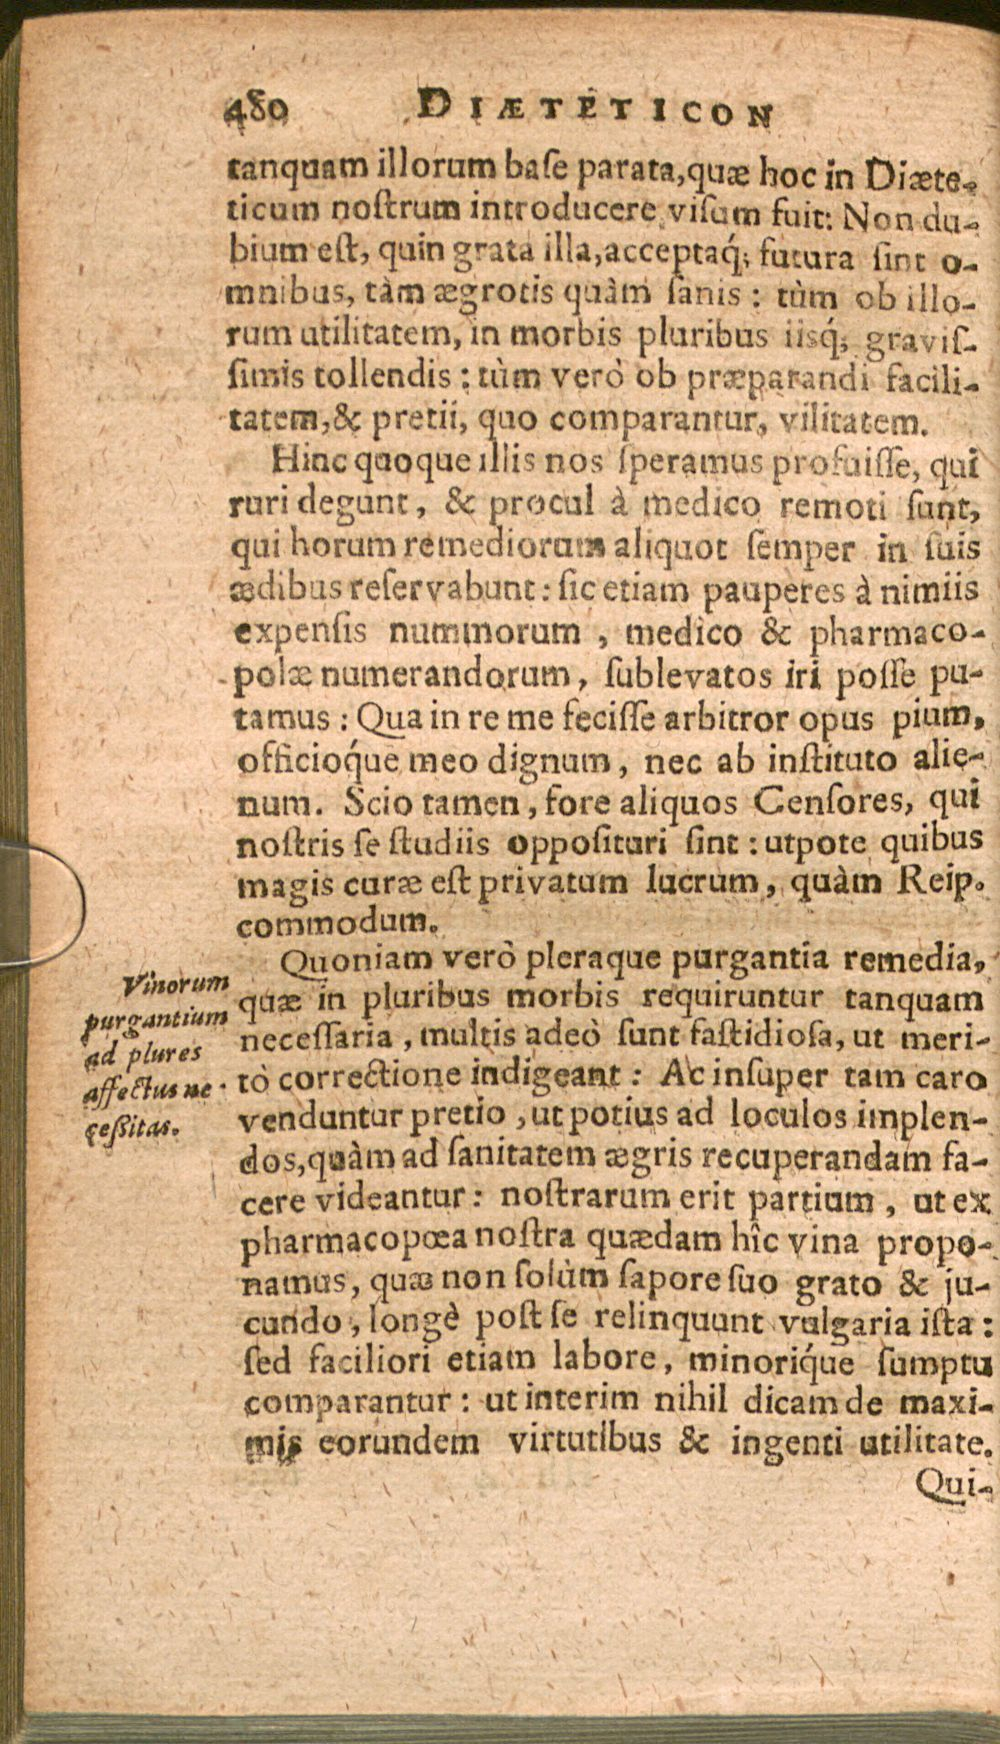 480 DIÆTETICON
tanquam illorum baſe parata, quæ hoc in Diæte-
ticum noſtrum introducere viſum fuit: Non du-
bium eſt, quin grata illa, acceptaq́; futura ſint o-
mnibus, tàm ægrotis quàm ſanis : tùm ob illo-
rum utilitatem, in morbis pluribus iisq́; graviſ-
ſimis tollendis : tùm verò ob præparandi facili-
tatem, & pretii, quo comparantur, vilitatem.
Hinc quoque illis nos ſperamus profuiſſe, qui
ruri degunt, & procul à medico remoti ſunt,
qui horum remediorum aliquot ſemper in ſuis
ædibus reſervabunt : ſic etiam pauperes à nimiis
expenſis nummorum , medico & pharmaco-
polæ numerandorum, ſublevatos iri poſſe pu-
tamus : Qua in re me feciſſe arbitror opus pium,
officioq́ue meo dignum, nec ab inſtituto alie-
num. Scio tamen, fore aliquos Cenſores, qui
noſtris ſe ſtudiis oppoſituri ſint : utpote quibus
magis curæ eſt privatum lucrum, quàm Reip.
commodum.
Quoniam verò pleraque purgantia remedia,
quæ in pluribus morbis requiruntur tanquam
neceſſaria, multis adeò ſunt faſtidioſa, ut meri-
tò correctione indigeant : Ac inſuper tam caro
venduntur pretio, ut potius ad loculos implen-
dos, quàm ad ſanitatem ægris recuperandam fa-
cere videantur : noſtrarum erit partium, ut ex
pharmacopœa noſtra quædam hîc vina propo-
namus, quæ non ſolùm ſapore ſuo grato & ju-
cundo, longè poſt ſe relinquunt vulgaria iſta :
ſed faciliori etiam labore, minoriq́ue ſumptu
comparantur : ut interim nihil dicam de maxi-
mis eorundem virtutibus & ingenti utilitate.
Qui-
Vinorum
purgantium
ad plures
affectus ne-
ceſſitas.